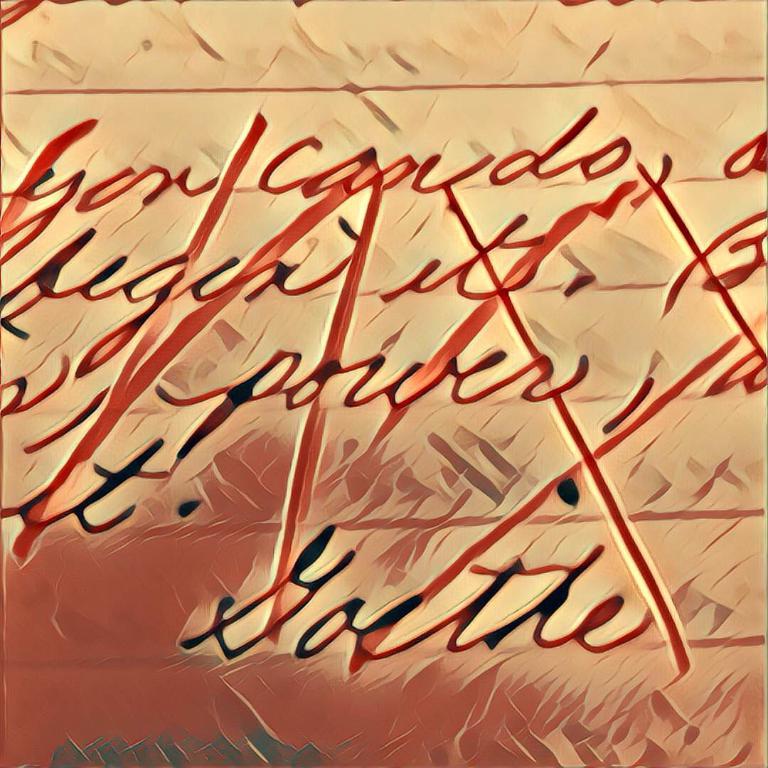 you can do,
begin it.
power,
it.
Goethe